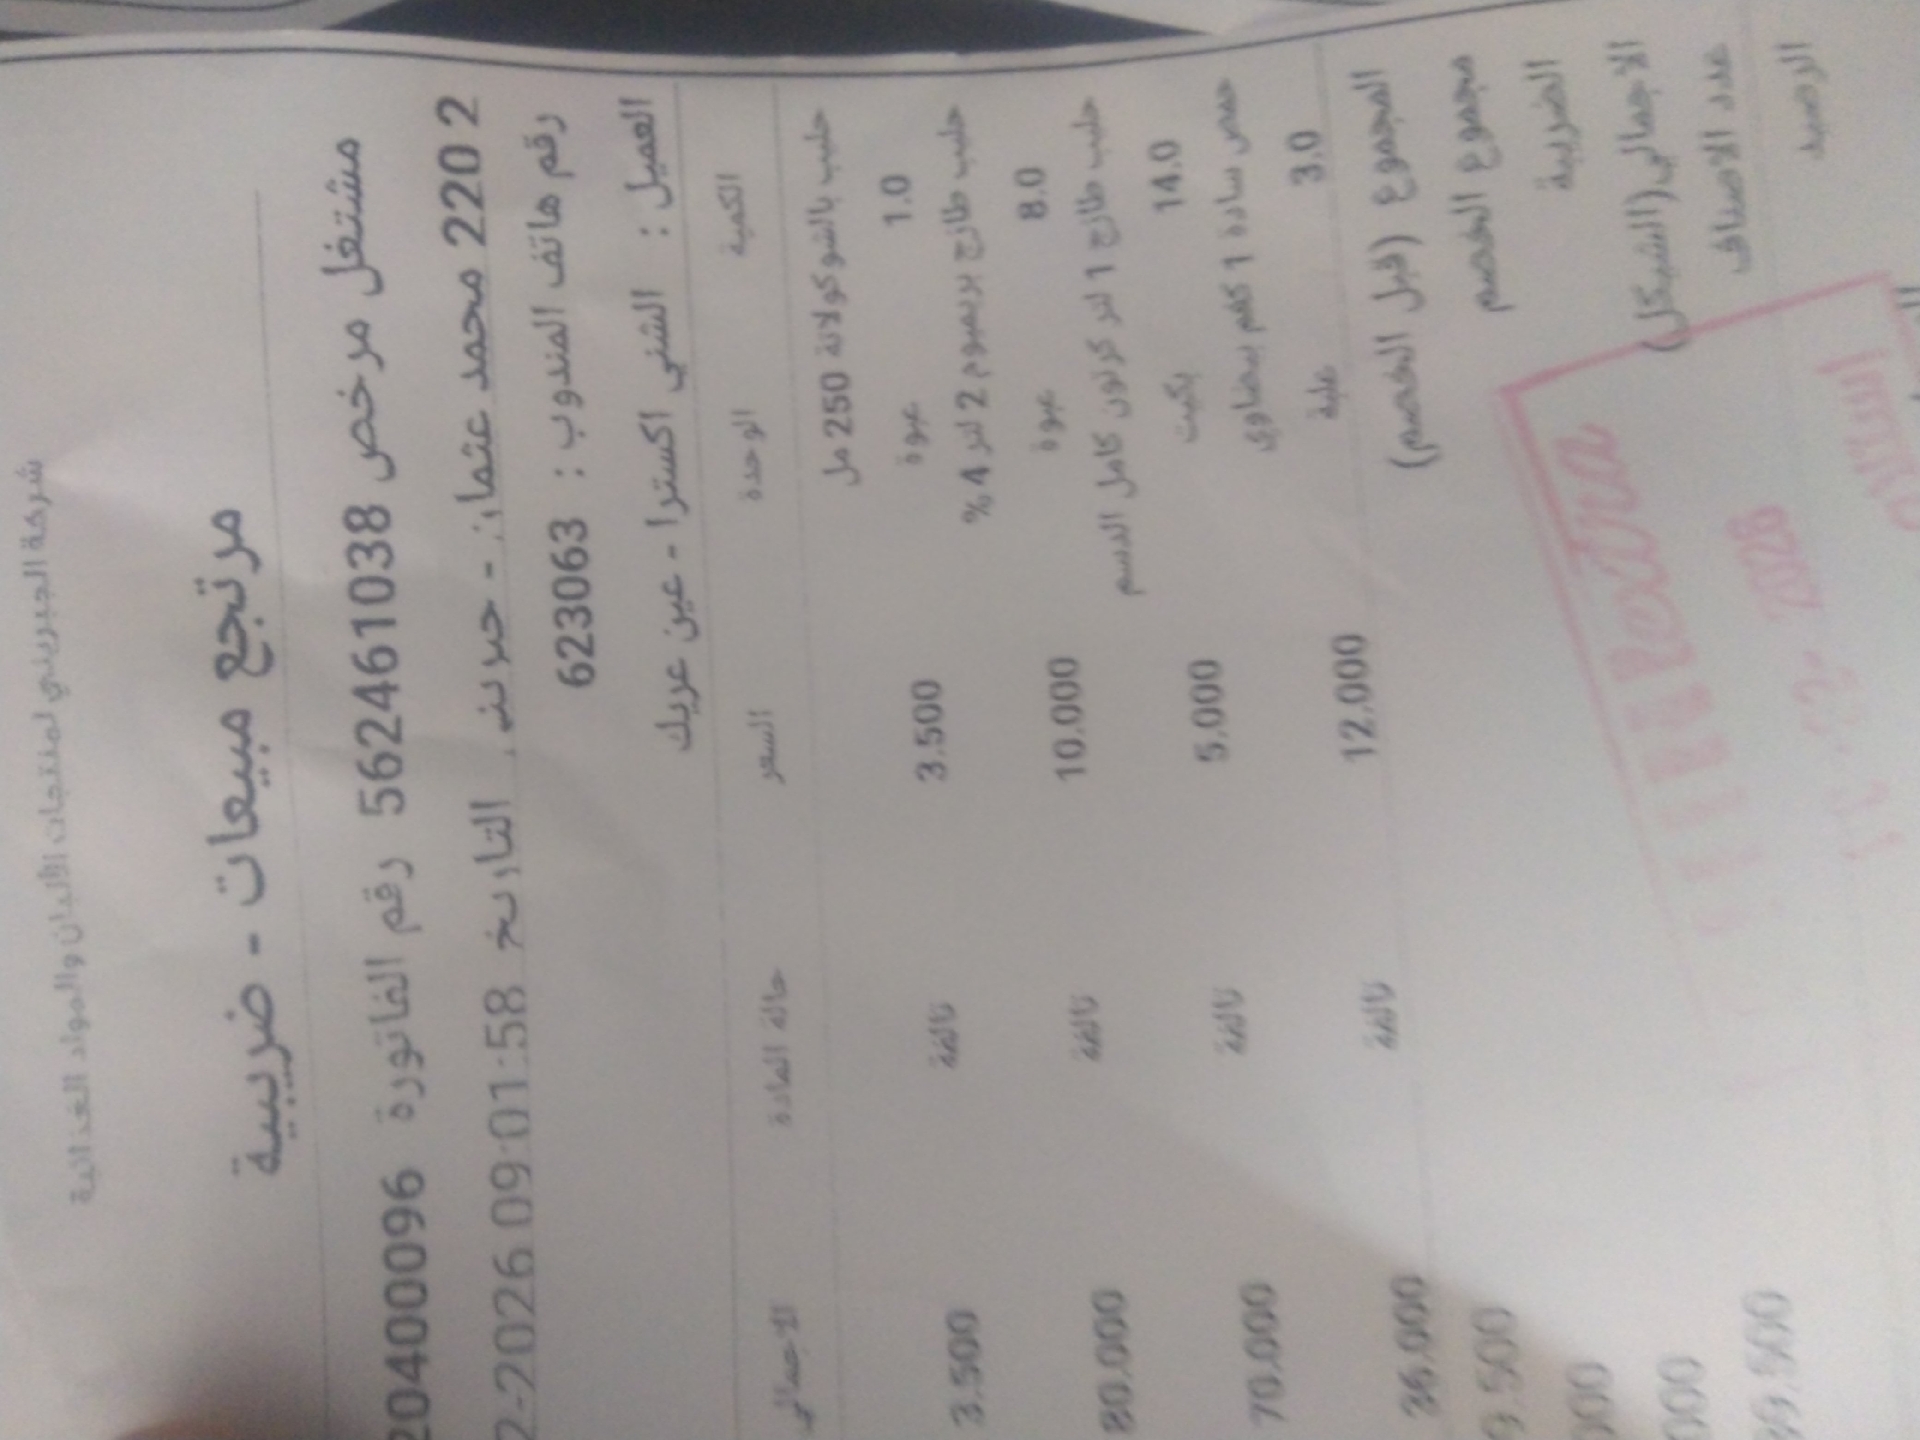 شركة الجبريني لمنتجات الألبان والمواد الغذائية
مرتجع مبيعات - ضريبية
مشتغل مرخص 562461038 رقم الفاتورة 20400096
220 2 محمد عثمان - التاريخ 2-2026 09:01:58
رقم هاتف المندوب : 623063
العميل : الشني اكسترا - عين عريك
الكمية الوحدة السعر حالة المادة الاجمالي
حليب بالشوكولاتة 250 مل
1.0 عبوة 3.500 تالفة 3.500
حليب طازج بريميوم 2 لتر 4%
8.0 عبوة 10.000 تالفة 80.000
حليب طازج 1 لتر كرتون كامل الدسم
14.0 بكيت 5.000 تالفة 70.000
حمص سادة 1 كغم بيضاوي
3.0 علبة 12.000 تالفة 36.000
المجموع (قبل الخصم) 9.500
مجموع الخصم 000
الضريبة 000
الاجمالي(الشيكل) 89.500
عدد الاصناف
الرصيد
extra
2026
استلام